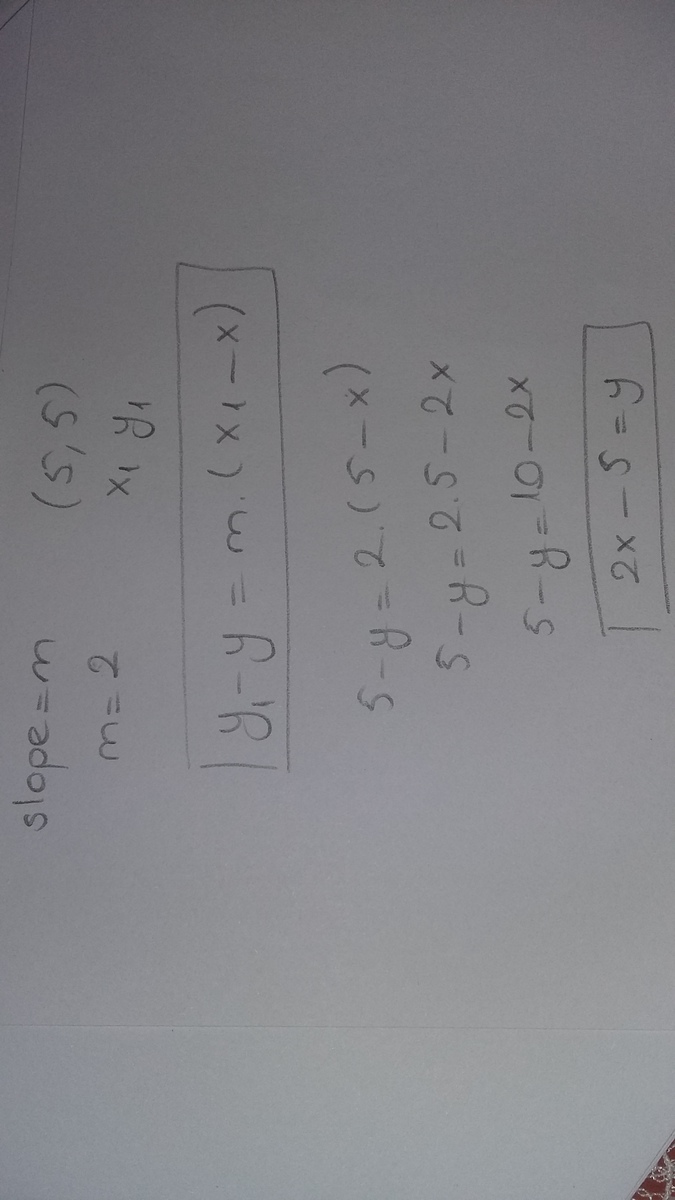 slope=m (5,5)
m=2 x₁ y₁
y₁-y=m.(x₁-x)
5-y=2.(5-x)
5-y=2.5-2x
5-y=10-2x
2x-5=y